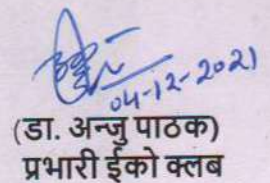 04-12-2021
(डा. अन्जु पाठक)
प्रभारी ईको क्लब